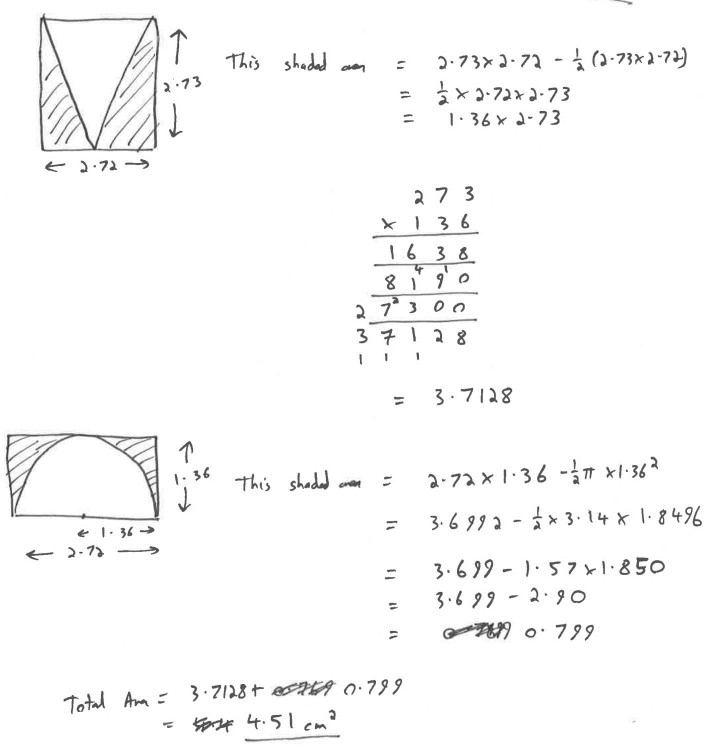 2.73
2.72
This shaded area = 2.73 x 2.72 - 1/2 (2.73 x 2.72)
= 1/2 x 2.72 x 2.73
= 1.36 x 2.73
2 7 3
x 1 3 6
1 6 3 8
8 1 4 9 1 0
2 7 2 3 0 0
3 7 1 2 8
1 1 1
= 3.7128
1.36
1.36
2.72
This shaded area = 2.72 x 1.36 - 1/2 π x 1.36²
= 3.6992 - 1/2 x 3.14 x 1.8496
= 3.699 - 1.57 x 1.850
= 3.699 - 2.90
= 0.799
Total Area = 3.7128 + 0.799
= 4.51 cm²